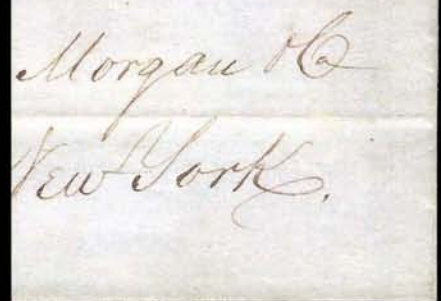 Morgan & Co
New York.